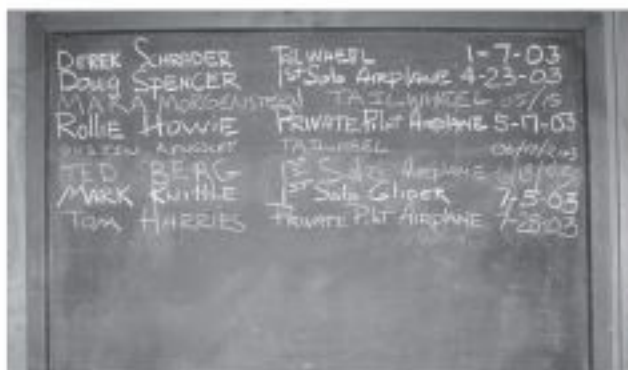 DEREK SCHRADER TAILWHEEL 1-7-03
DOUG SPENCER 1st Solo AIRPLANE 4-23-03
MARA MORGENSTERN TAILWHEEL 05/15
ROLLIE HOWIE PRIVATE PILOT AIRPLANE 5-17-03
TAILWHEEL
TED BERG 1st Solo AIRPLANE
MARK KNITTLE 1ST Solo GLIDER 7-5-03
TOM HARRIES PRIVATE PILOT AIRPLANE 7-28-03